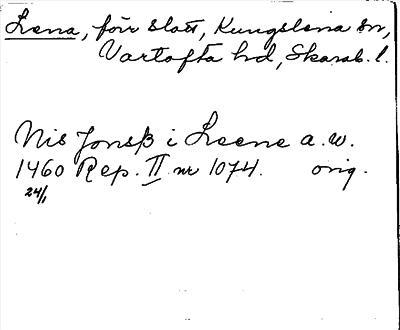 Lena, förr slott, Kungslena sn,
Vartofta hd, Skarab. l.
Nis Jonss i Leene a. w.
1460 Rep. II nr 1074. orig.
24/1